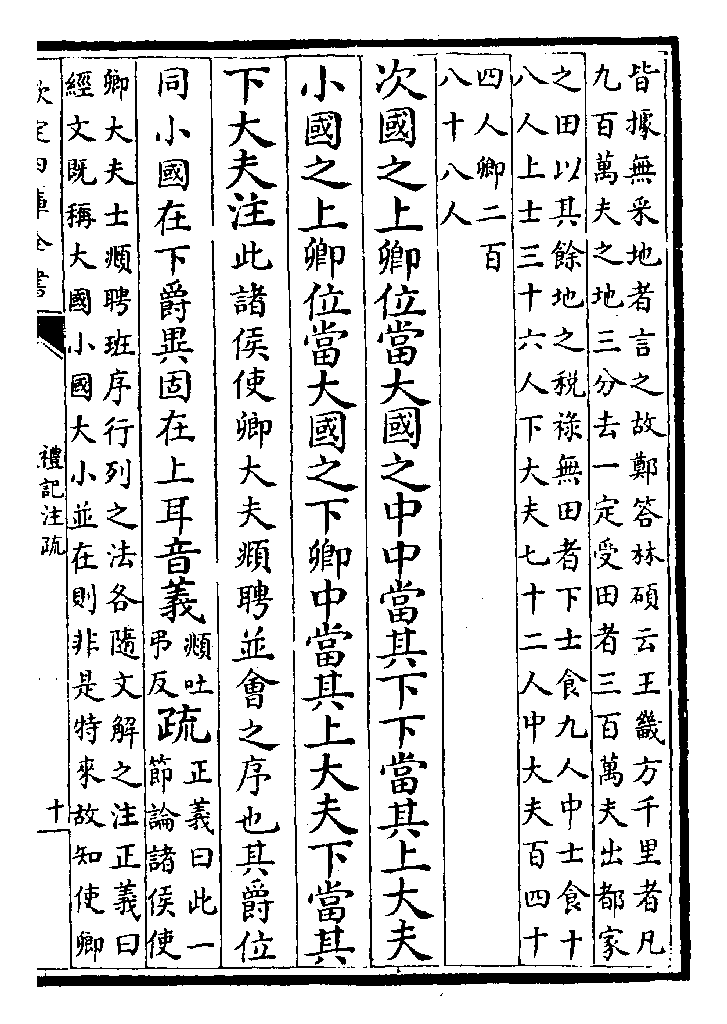 皆據無采地者言之故鄭答林碩云王畿方千里者凡
九百萬夫之地三分去一定受田者三百萬夫出都家
之田以其餘地之税祿無田者下士食九人中士食十
八人上士三十六人下大夫七十二人中大夫百四十
四人卿二百
八十八人
次國之上卿位當大國之中中當其下下當其上大夫
小國之上卿位當大國之下卿中當其上大夫下當其
下大夫注此諸侯使卿大夫頫聘並會之序也其爵位
同小國在下爵異固在上耳音義頫吐
弔反疏正義曰此一
節論諸侯使
卿大夫士頫聘班序行列之法各隨文解之注正義曰
經文既稱大國小國大小並在則非是特來故知使卿
欽定四庫全書
禮記注疏
十